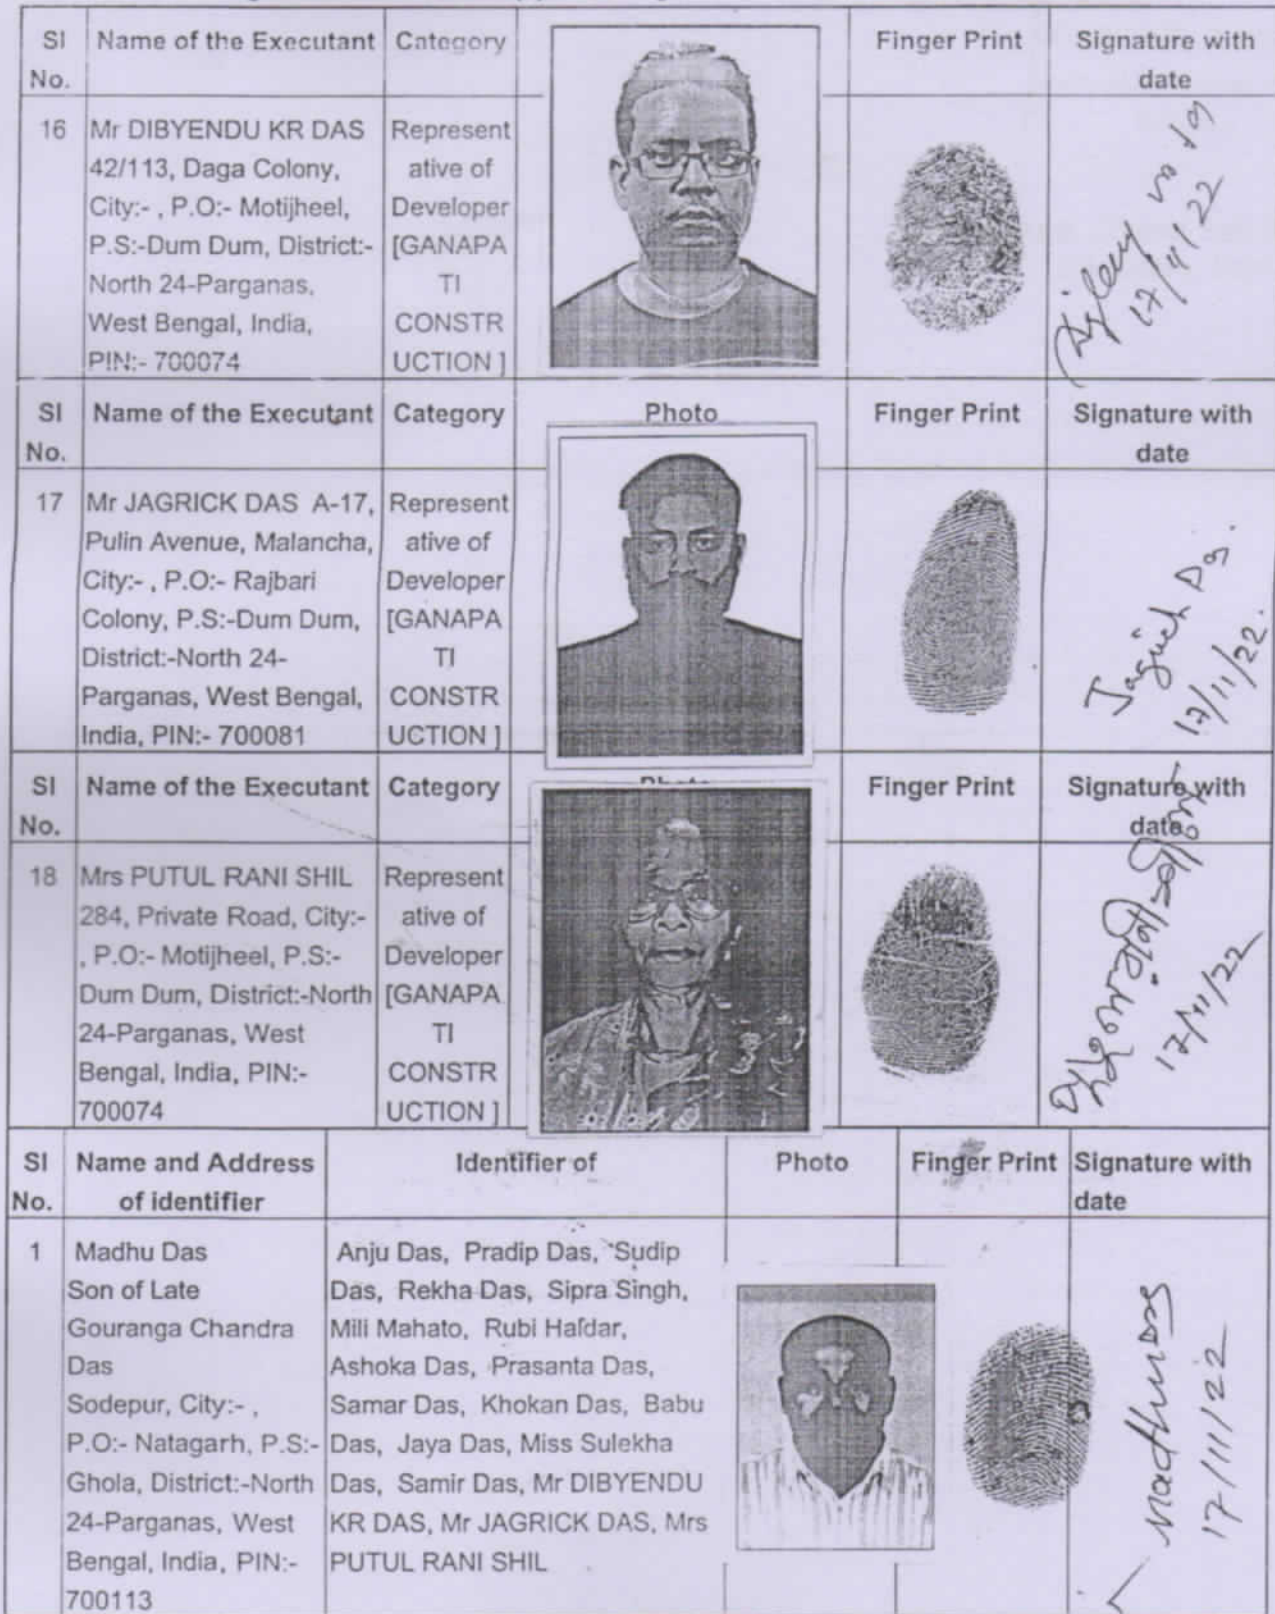 Sl No. Name of the Executant Category Finger Print Signature with date
16 Mr DIBYENDU KR DAS
42/113, Daga Colony,
City:- , P.O:- Motijheel,
P.S:-Dum Dum, District:-
North 24-Parganas,
West Bengal, India,
PIN:- 700074
Represent
ative of
Developer
[GANAPA
TI
CONSTR
UCTION ]
17/11/22
Sl No. Name of the Executant Category Photo Finger Print Signature with date
17 Mr JAGRICK DAS A-17,
Pulin Avenue, Malancha,
City:- , P.O:- Rajbari
Colony, P.S:-Dum Dum,
District:-North 24-
Parganas, West Bengal,
India, PIN:- 700081
Represent
ative of
Developer
[GANAPA
TI
CONSTR
UCTION ]
Jagrick Das.
17/11/22.
Sl No. Name of the Executant Category Photo Finger Print Signature with date
18 Mrs PUTUL RANI SHIL
284, Private Road, City:-
, P.O:- Motijheel, P.S:-
Dum Dum, District:-North
24-Parganas, West
Bengal, India, PIN:-
700074
Represent
ative of
Developer
[GANAPA
TI
CONSTR
UCTION ]
17/11/22
Sl No. Name and Address of identifier Identifier of Photo Finger Print Signature with date
1 Madhu Das
Son of Late
Gouranga Chandra
Das
Sodepur, City:- ,
P.O:- Natagarh, P.S:-
Ghola, District:-North
24-Parganas, West
Bengal, India, PIN:-
700113
Anju Das, Pradip Das, Sudip
Das, Rekha Das, Sipra Singh,
Mili Mahato, Rubi Haldar,
Ashoka Das, Prasanta Das,
Samar Das, Khokan Das, Babu
Das, Jaya Das, Miss Sulekha
Das, Samir Das, Mr DIBYENDU
KR DAS, Mr JAGRICK DAS, Mrs
PUTUL RANI SHIL
Madhu Das
17/11/22